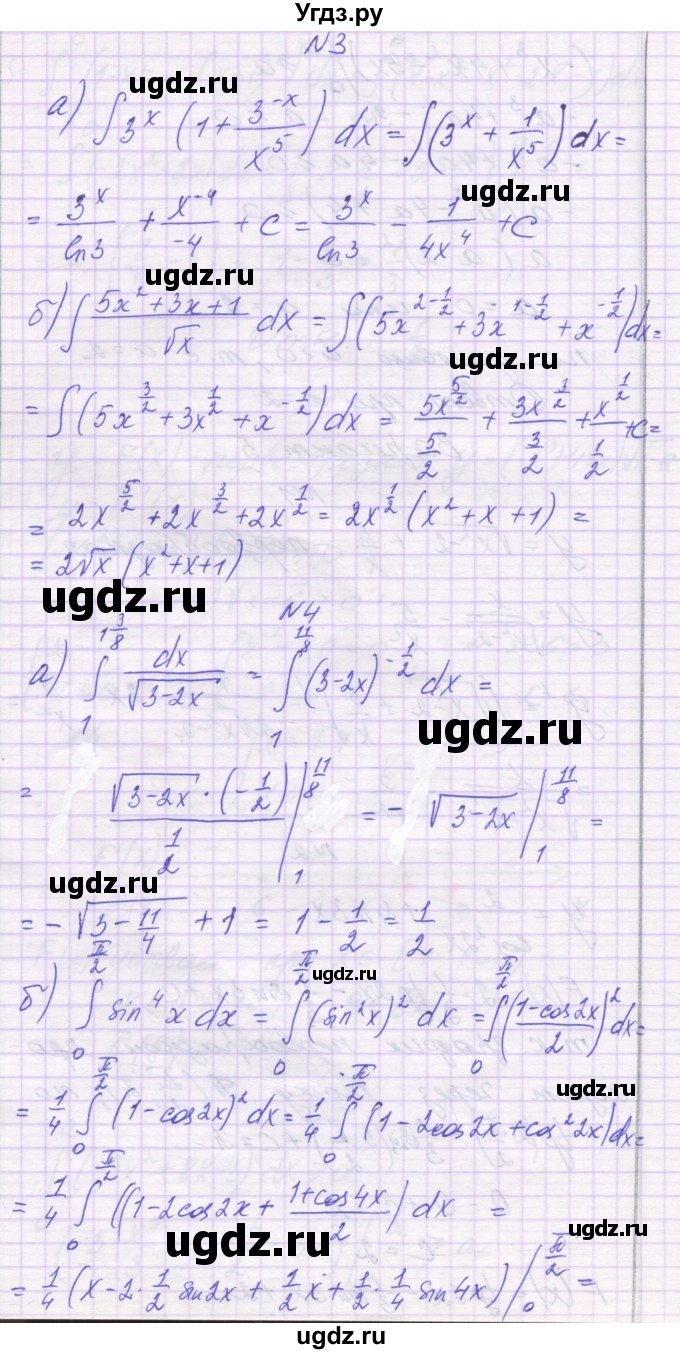 Угдз.ру
N3
ugdz.ru
а) ∫ 3^x (1 + 3^{-x}/x^5) dx = ∫ (3^x + 1/x^5) dx =
ugdz.ru
= 3^x/ln3 + x^{-4}/-4 + C = 3^x/ln3 - 1/4x^4 + C
ugdz.ru
б) ∫ (5x^2+3x+1)/√x dx = ∫ (5x^{2-1/2} + 3x^{1-1/2} + x^{-1/2}) dx =
ugdz.ru
= ∫ (5x^{3/2} + 3x^{1/2} + x^{-1/2}) dx = 5x^{5/2}/(5/2) + 3x^{3/2}/(3/2) + x^{1/2}/(1/2) + C =
= 2x^{5/2} + 2x^{3/2} + 2x^{1/2} = 2x^{1/2} (x^2 + x + 1) =
= 2√x (x^2+x+1)
ugdz.ru
N4
а) ∫_1^{1 3/8} dx/√(3-2x) = ∫_1^{11/8} (3-2x)^{-1/2} dx =
ugdz.ru
= √(3-2x) · (-1/2)/(1/2) |_1^{11/8} = - √(3-2x) |_1^{11/8} =
ugdz.ru
= - √(3 - 11/4) + 1 = 1 - 1/2 = 1/2
ugdz.ru
б) ∫_0^{π/2} sin^4 x dx = ∫_0^{π/2} (sin^2 x)^2 dx = ∫_0^{π/2} ((1-cos2x)/2)^2 dx =
= 1/4 ∫_0^{π/2} (1-cos2x)^2 dx = 1/4 ∫_0^{π/2} (1-2cos2x + cos^2 2x) dx =
= 1/4 ∫_0^{π/2} ((1-2cos2x + (1+cos4x)/2) dx =
ugdz.ru
ugdz.ru
= 1/4 (x - 2·1/2 sin2x + 1/2 x + 1/2 · 1/4 sin4x) |_0^{π/2} =
ugdz.ru